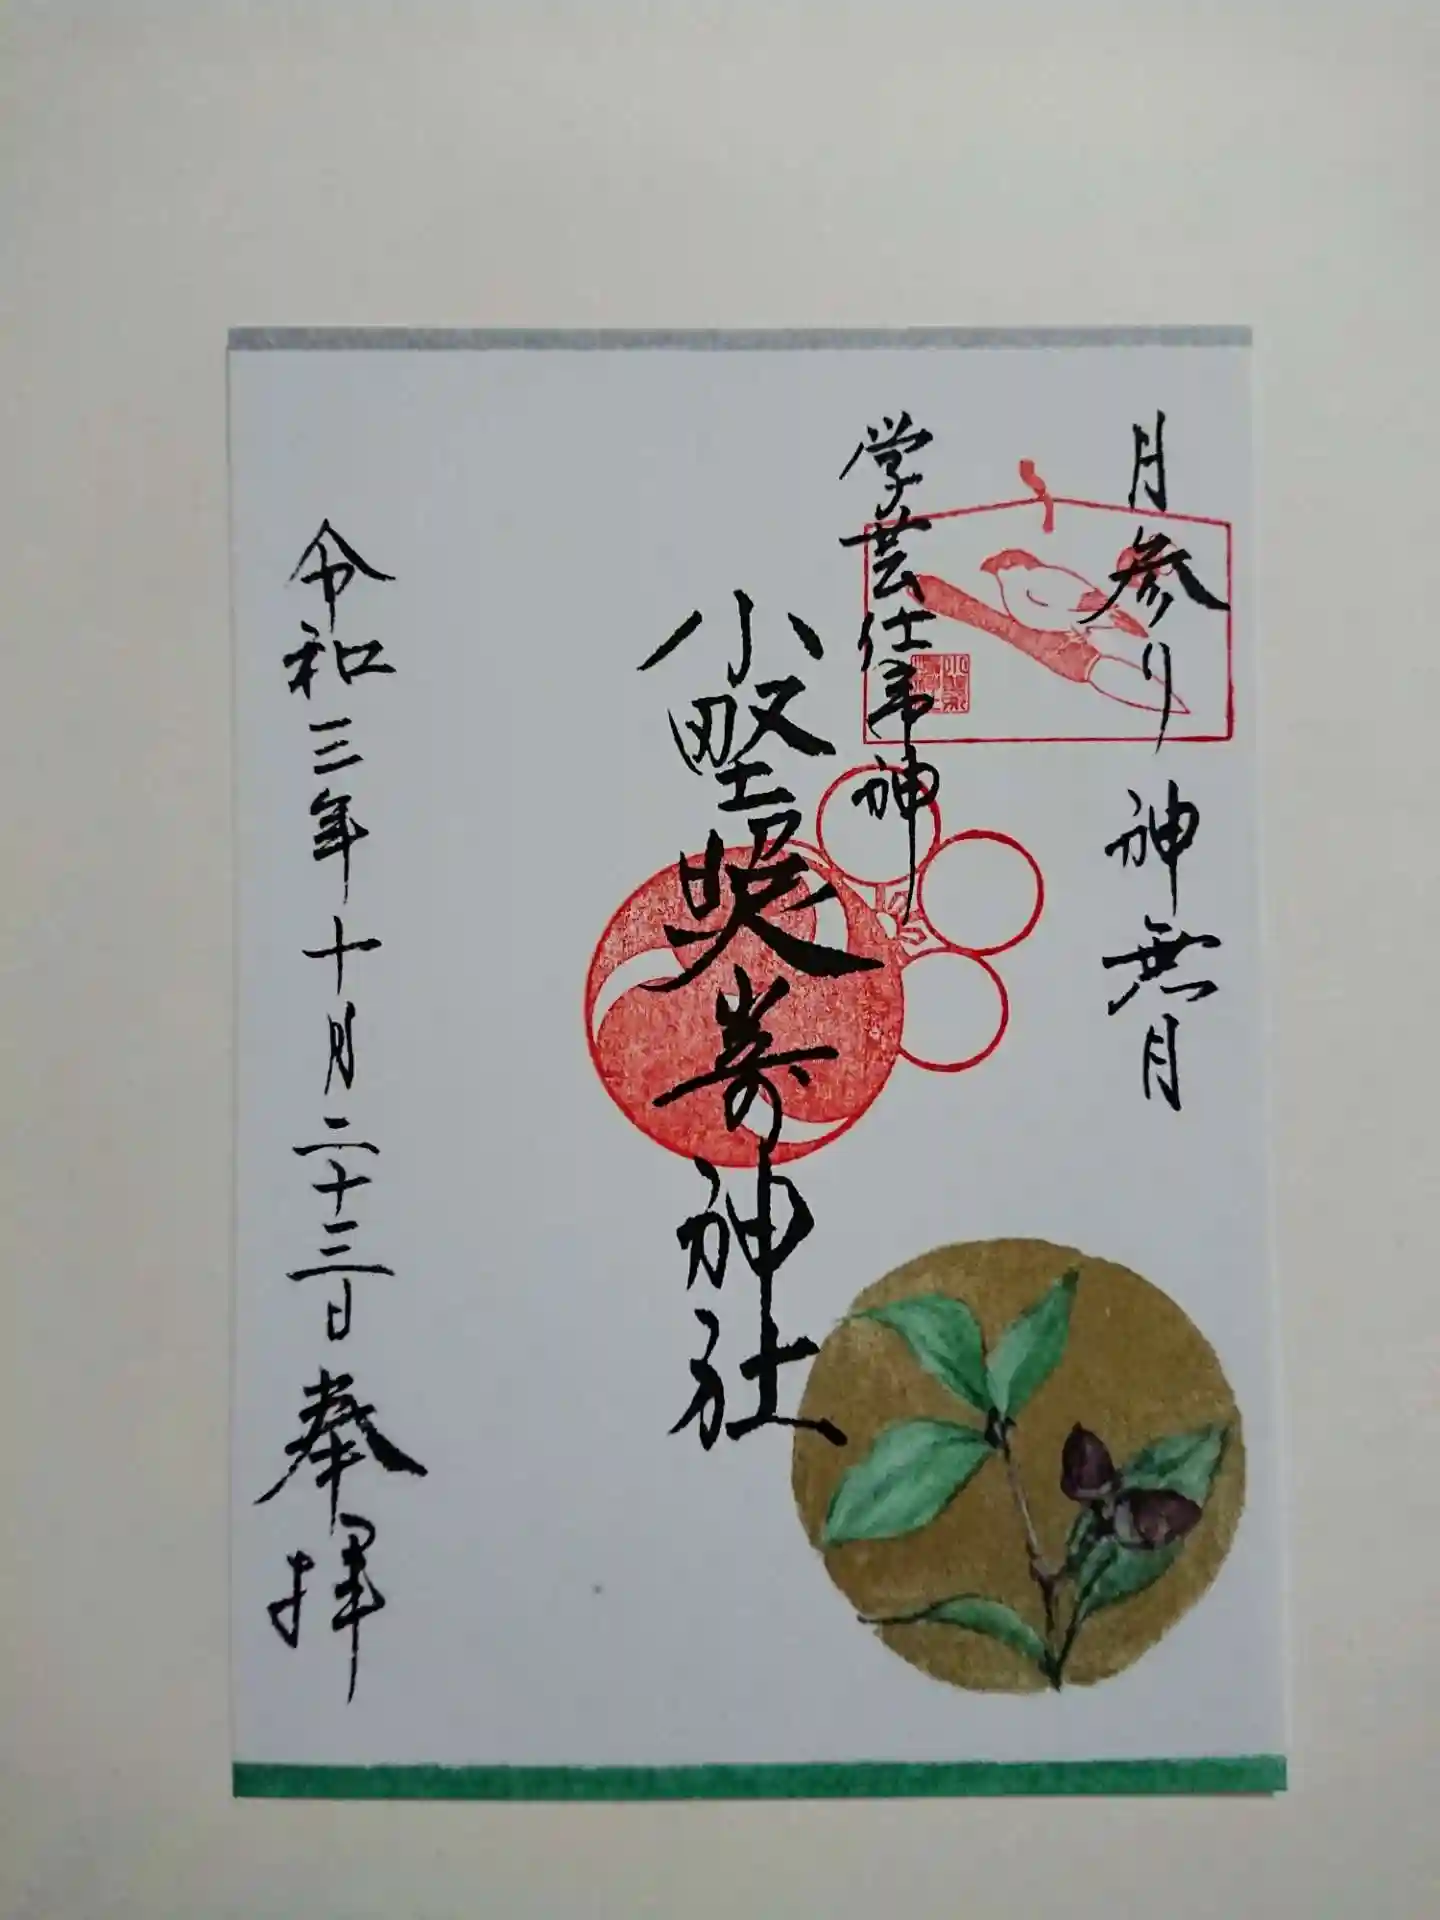 月参り 神無月
学芸仕事神
小野照嵜神社
令和三年十月二十三日 奉拝